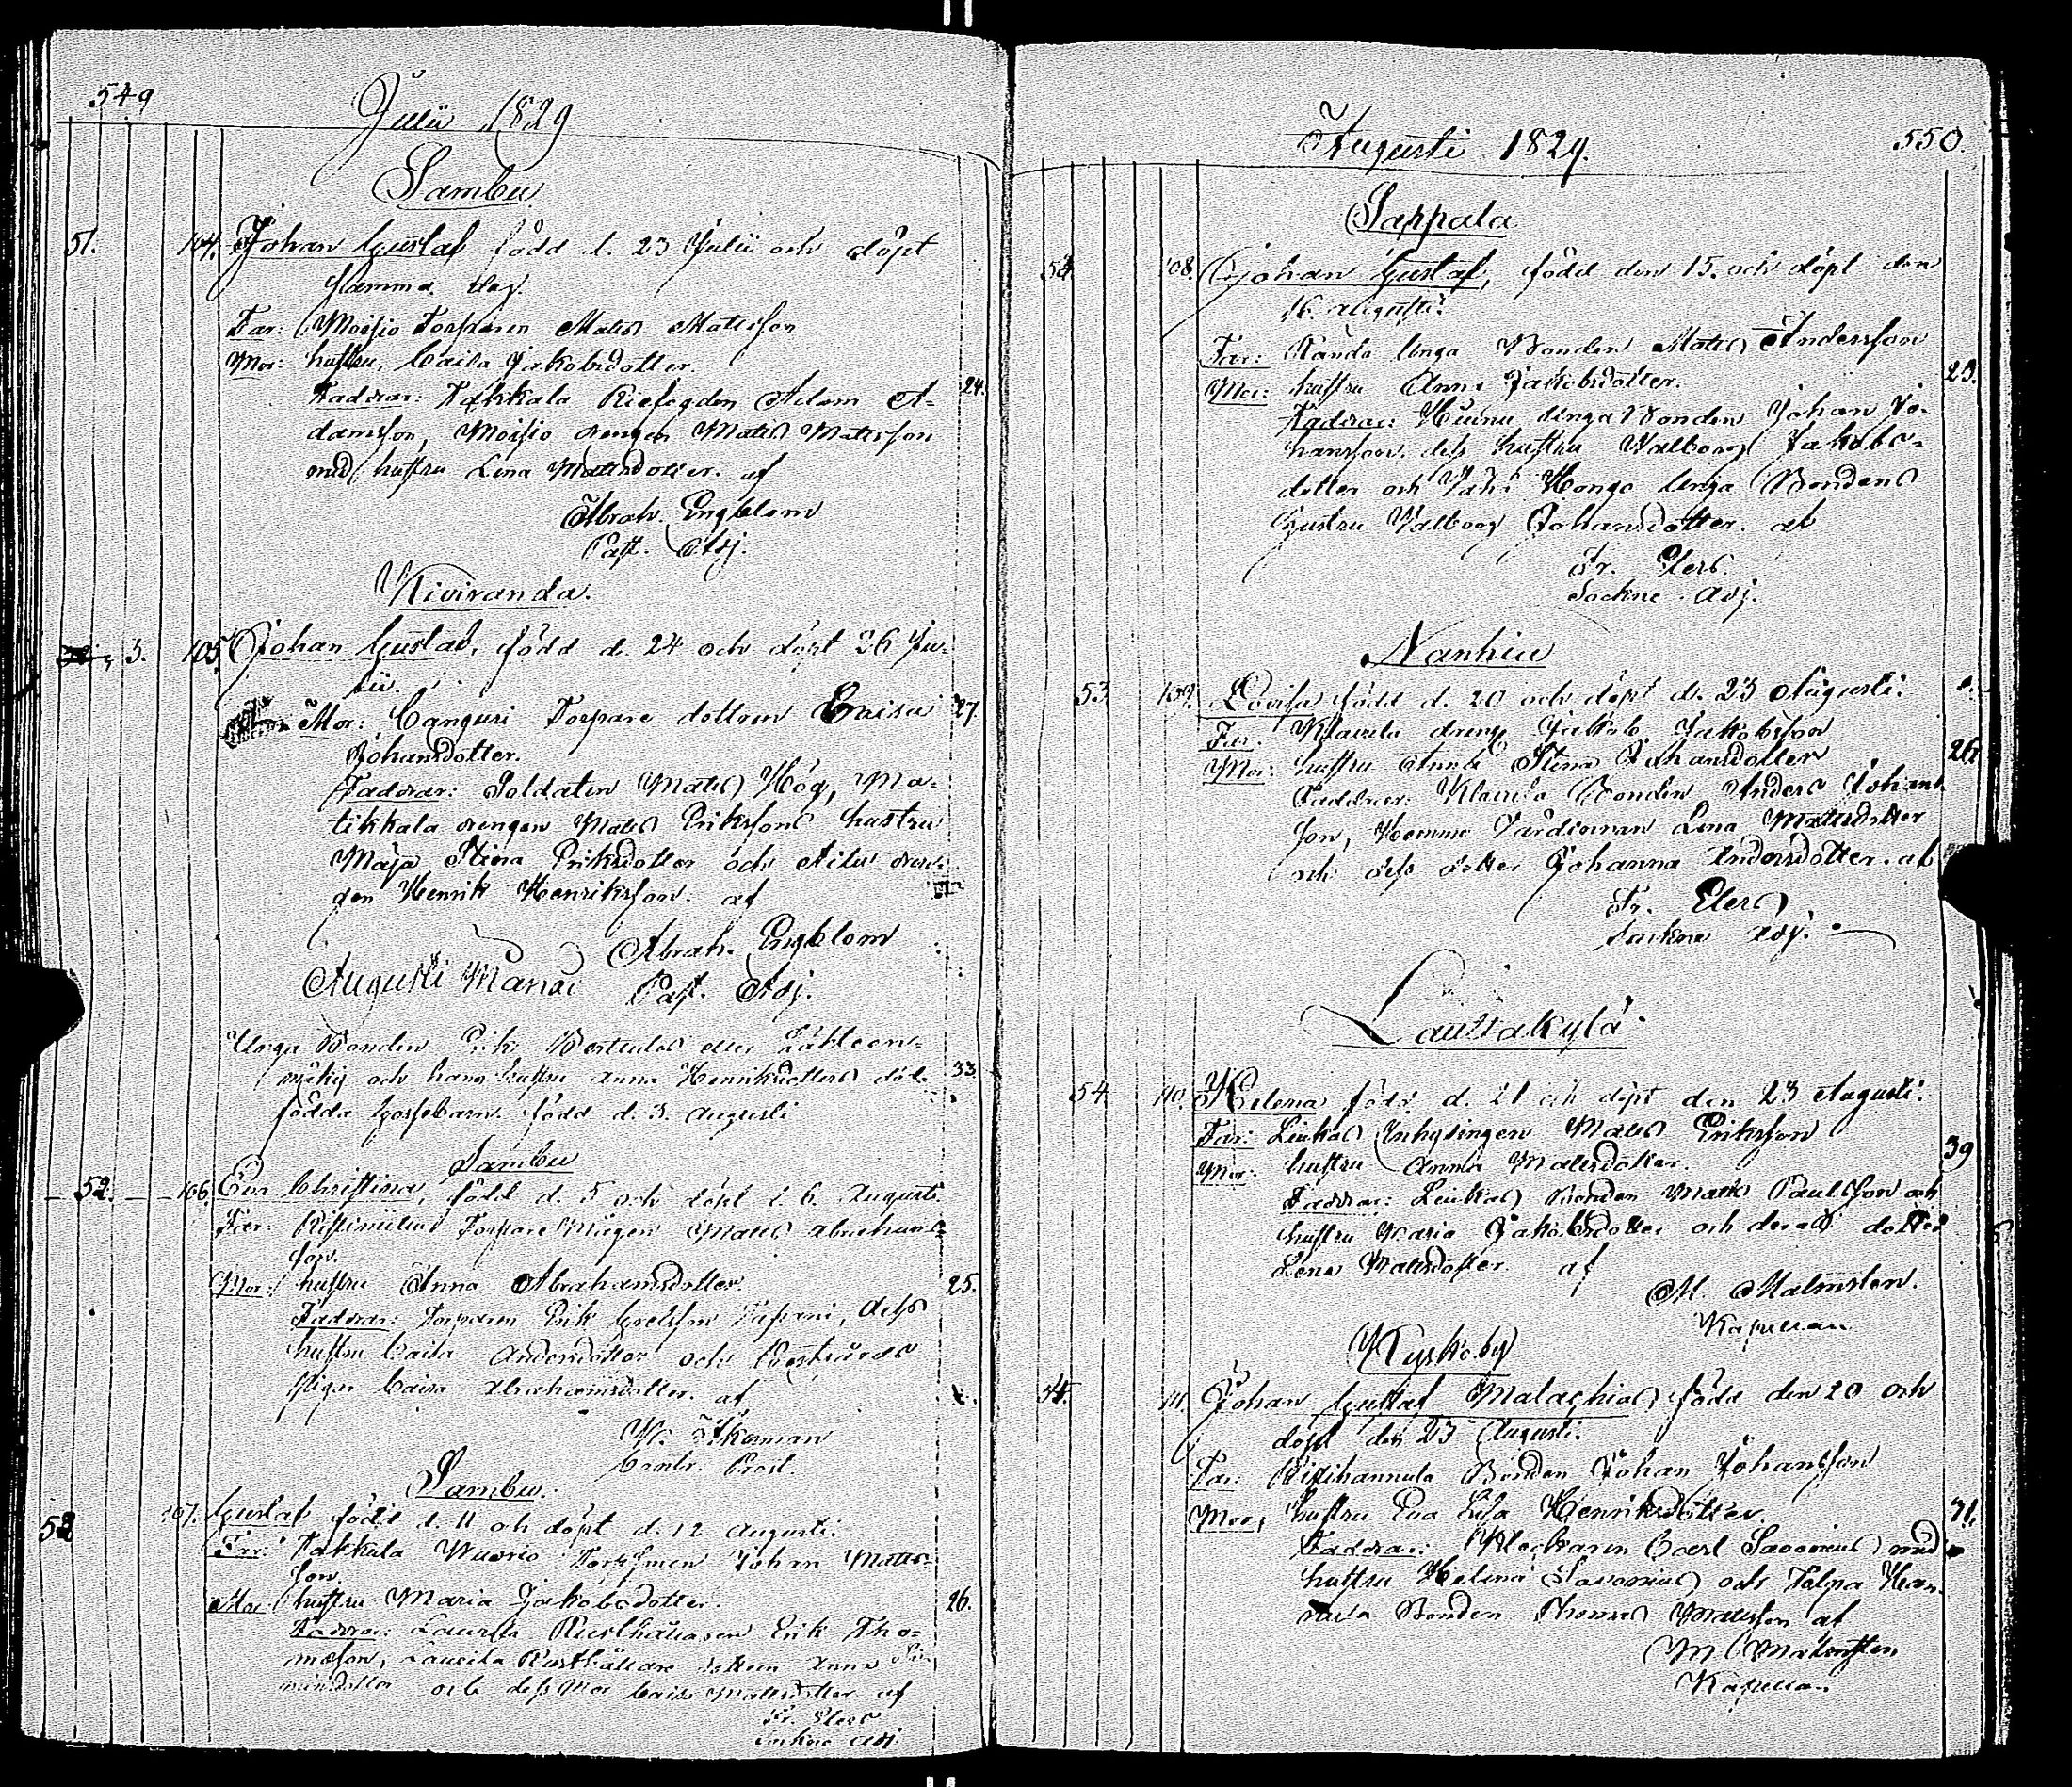 549
Julii 1829
Sambu
51. 104. Johan Gustaf född d. 23 Julii och döpt
samma dag.
Far: Moisio Torparen Matts Mattsson
Mor: hustru, Caisa Jakobsdotter. 24.
Faddrar: Takkala Adam A-
damsson, Moisio drengen Matts Mattsson
med hustru Lena Mattsdotter. af
Abrah. Engblom
Past. Adj.
Kiviranda.
3. 105. Johan Gustaf, född d. 24 och döpt 26 Ju-
lii.
Mor: Canguri Torpare dottren Caisa 27.
Johansdotter.
Faddrar: Soldaten Matts Hög, Ma-
tikkala drengen Matts Erikssons hustru
Maja Stina Eriksdotter och dren-
gen Henrik Henriksson. af
Abrah. Engblom
Past. Adj.
Augusti Månad
Unga Bonden Erik eller
mäky och hans hustru Anna Henriksdotters död- 33.
födda Gossebarn. född d. 3. Augusti
Sambu
52. 106. Eva Christina, född d. 5 och döpt d. 6. Augusti.
Far: Torpare Mågen Matts Abrahams-
son.
Mor: hustru Anna Abrahamsdotter. 25.
Faddrar: Torparen Erik dess
hustru Caisa Andersdotter och
Pigan Caisa Abrahamsdotter. af
Åkerman
Contr. Prost.
Sambu.
52 107. Gustaf född d. 11 och döpt d. 12 Augusti.
Far: Takkula Wuorio Johan Matts-
son.
Mor: hustru Maria Jakobsdotter. 26.
Faddrar: Laurila Rusthållaren Erik Tho-
masson, Laurila Rusthållare dottren Anna
och dess Mor Caisa Mattsdotter af
Fr. Elers
Sockne Adj.
550.
Augusti 1829.
Sappala
108. Johan Gustaf, född den 15. och döpt den
16. augusti.
Far: Unga Bonden Matts Andersson
Mor: hustru Anna Jakobsdotter. 23.
Faddrar: Unga Bonden Johan Jo-
hansson, dess hustru Walborg Jakobs-
dotter och Hongo Unga Bondens
hustru Walborg Johansdotter. af
Fr. Elers.
Sockne Adj.
Nanhia
53 109. Lovisa född d. 20 och döpt d. 23 Augusti.
Far: Klaurila dreng Jakob Jakobsson
Mor: hustru Anna Stina Johansdotter 26
Faddrar: Klaurila Bonden Anders Johans-
son, Lena Mattsdotter
och dess dotter Johanna Andersdotter. af
Fr. Elers
Sockne Adj.
Lauttakylä
54 110. Helena född d. 21 och döpt den 23 Augusti.
Far: Leukas Inhysingen Matts Eriksson
Mor: hustru Anna Mattsdotter. 39
Faddrar: Leukas Bonden Matts Paulsson och
hustru Maria Jakobsdotter och deras dotter
Lena Mattsdotter. af
M. Malmsten.
Kapellan
Kyrkoby
111. Johan Gustaf Malachias född den 20 och
döpt den 23 Augusti.
Far: Ristihannula Bonden Johan Johansson
Mor; hustru Eva Lisa Henriksdotter.
Faddrar: Klockaren Carl Savonius med
hustru Helena Savonius och Talpa Han-
nula Bonden Thomas Mattsson af
M Malmsten
Kapellan.